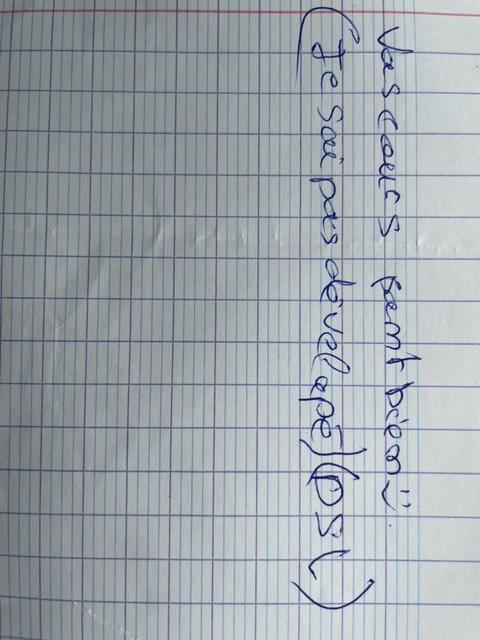 Vos cours sont bien :).
(Je sai pas dévelopé) (DSL)